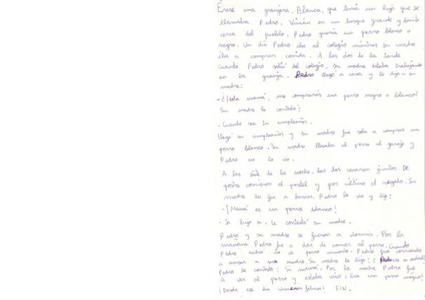 Érase una granjera, Blanca, que tenía un hijo que se
llamaba Pedro. Vivían en un bosque grande y bonito
cerca del pueblo. Pedro quería un perro blanco o
negro. Un día Pedro iba al colegio mientras su madre
iba a comprar comida. A las dos de la tarde
cuando Pedro salió del colegio, su madre estaba trabajando
en la granja. Pedro llegó a casa y le dijo a su
madre:
-¡Hola mamá, me comprarás un perro negro o blanco?
Su madre le contestó:
- Cuando sea tu cumpleaños.
Llegó su cumpleaños y su madre fue sola a comprar un
perro blanco. Su madre llevaba el perro al garaje y
Pedro no lo vio.
A las de la noche, los dos cenaron juntos. De
postre comieron el pastel y por último el regalo. Su
madre le fue a buscar. Pedro lo vio y dijo:
-¡Mamá es un perro blanco!
- Si hijo si. Le contestó su madre.
Pedro y su madre se fueron a dormir. Por la
mañana Pedro fue a dar de comer al perro. Cuando
Pedro al perro muerto. Pedro fue corriendo
a a su madre. Su madre le dijo:
Pedro le contestó: Si mamá. Por la noche Pedro fue
a ver al perro y estaba vivo ¡Era un perro mágico!
¡Desde ese día felices! FIN.